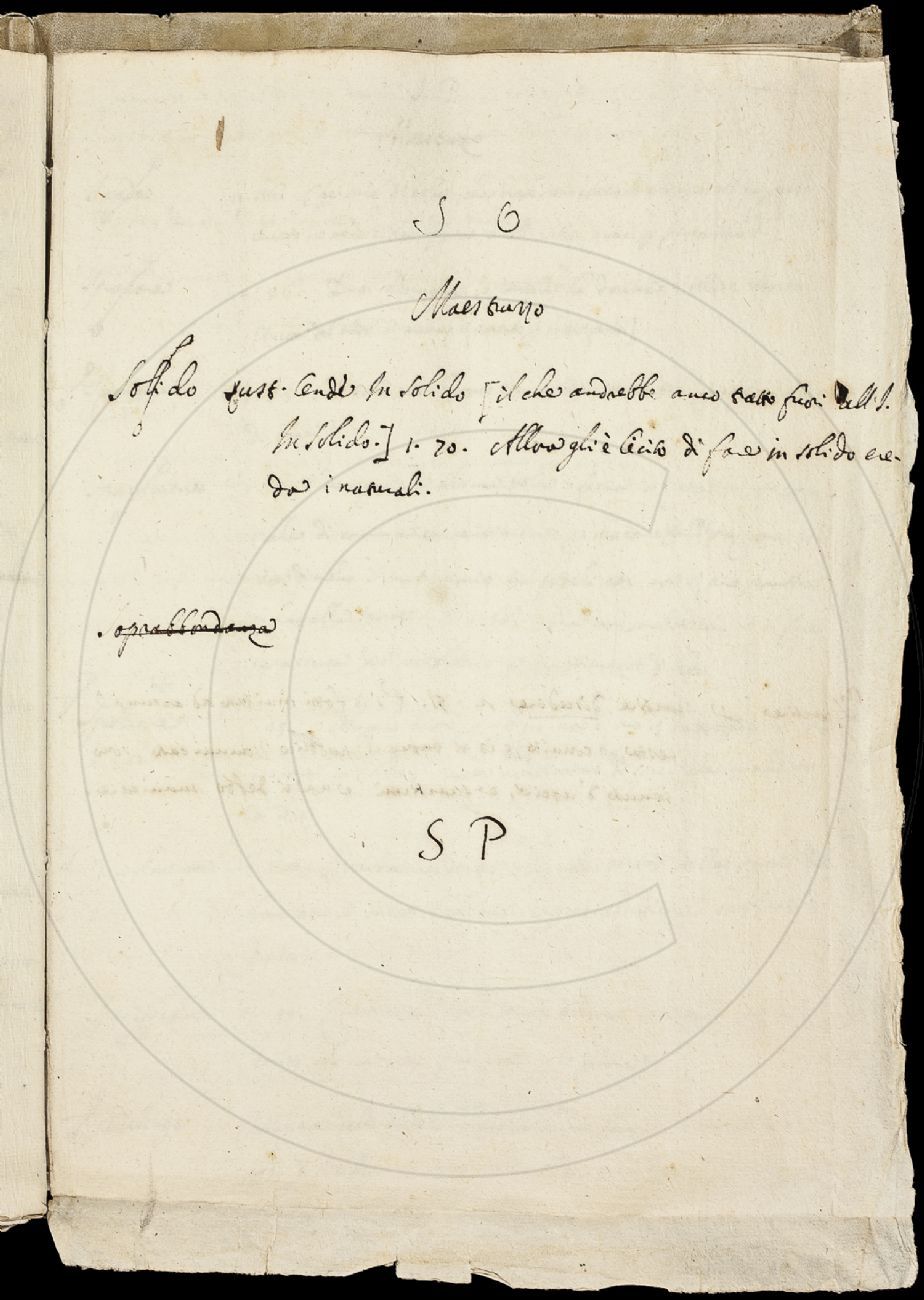 S O
Maestruzzo
Solido sust. In solido [il che andrebbe anco tratto fuori all' I.
In solido.] 1. 70. Allora gli è lecito di fare in solido ere-
da i naturali.
Soprabbondanza
S P